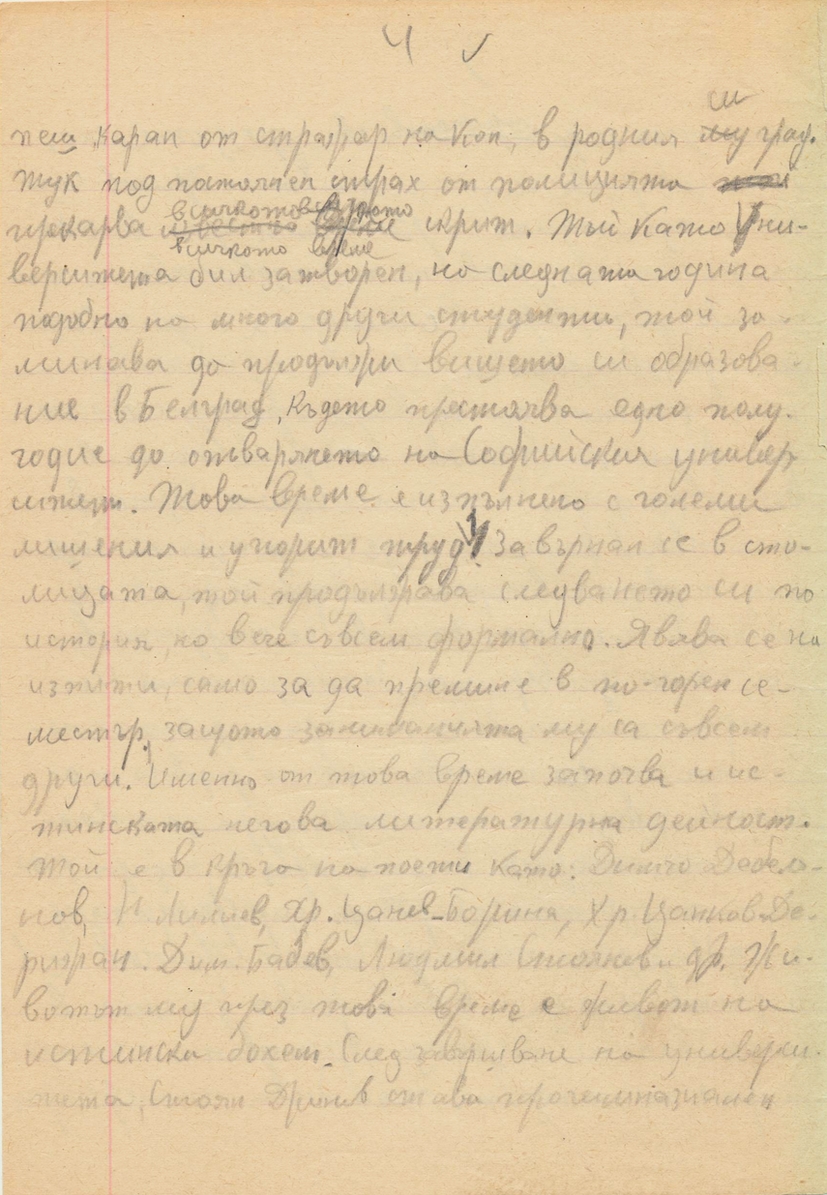 4 ✓
си
пеш каран от стражар на кон, в родния му град.
Тук под постоянен страх от полицията
всичкото
прекарва време скрит. Тъй като Уни-
всичкото време
верситета бил затворен, на следната година
подобно на много други студенти, той за-
минава да продължи висшето си образова-
ние в Белград, където престоява едно полу-
годие до отварянето на Софийския универ
ситет. Това време е изпълнено с големи
лишения и упорит труд. Завърнал се в сто-
лицата, той продължава следването си по
история, но вече съвсем формално. Явява се на
изпити, само за да премине в по-горен се-
местър, защото заниманията му са съвсем
други. Именно от това време започва и ис-
тинската негова литературна дейност.
Той е в кръга на поети като: Димчо Дебеля-
нов, Н Лилиев, Хр. Цанев-Борина, Хр. Цанков-Де-
рижан. Дим. Бабев, Людмил Стоянов и др. Жи-
вотът му през това време е живот на
истински бохем. След завършване на универси-
тета, Стоян Дринов става прогимназиален